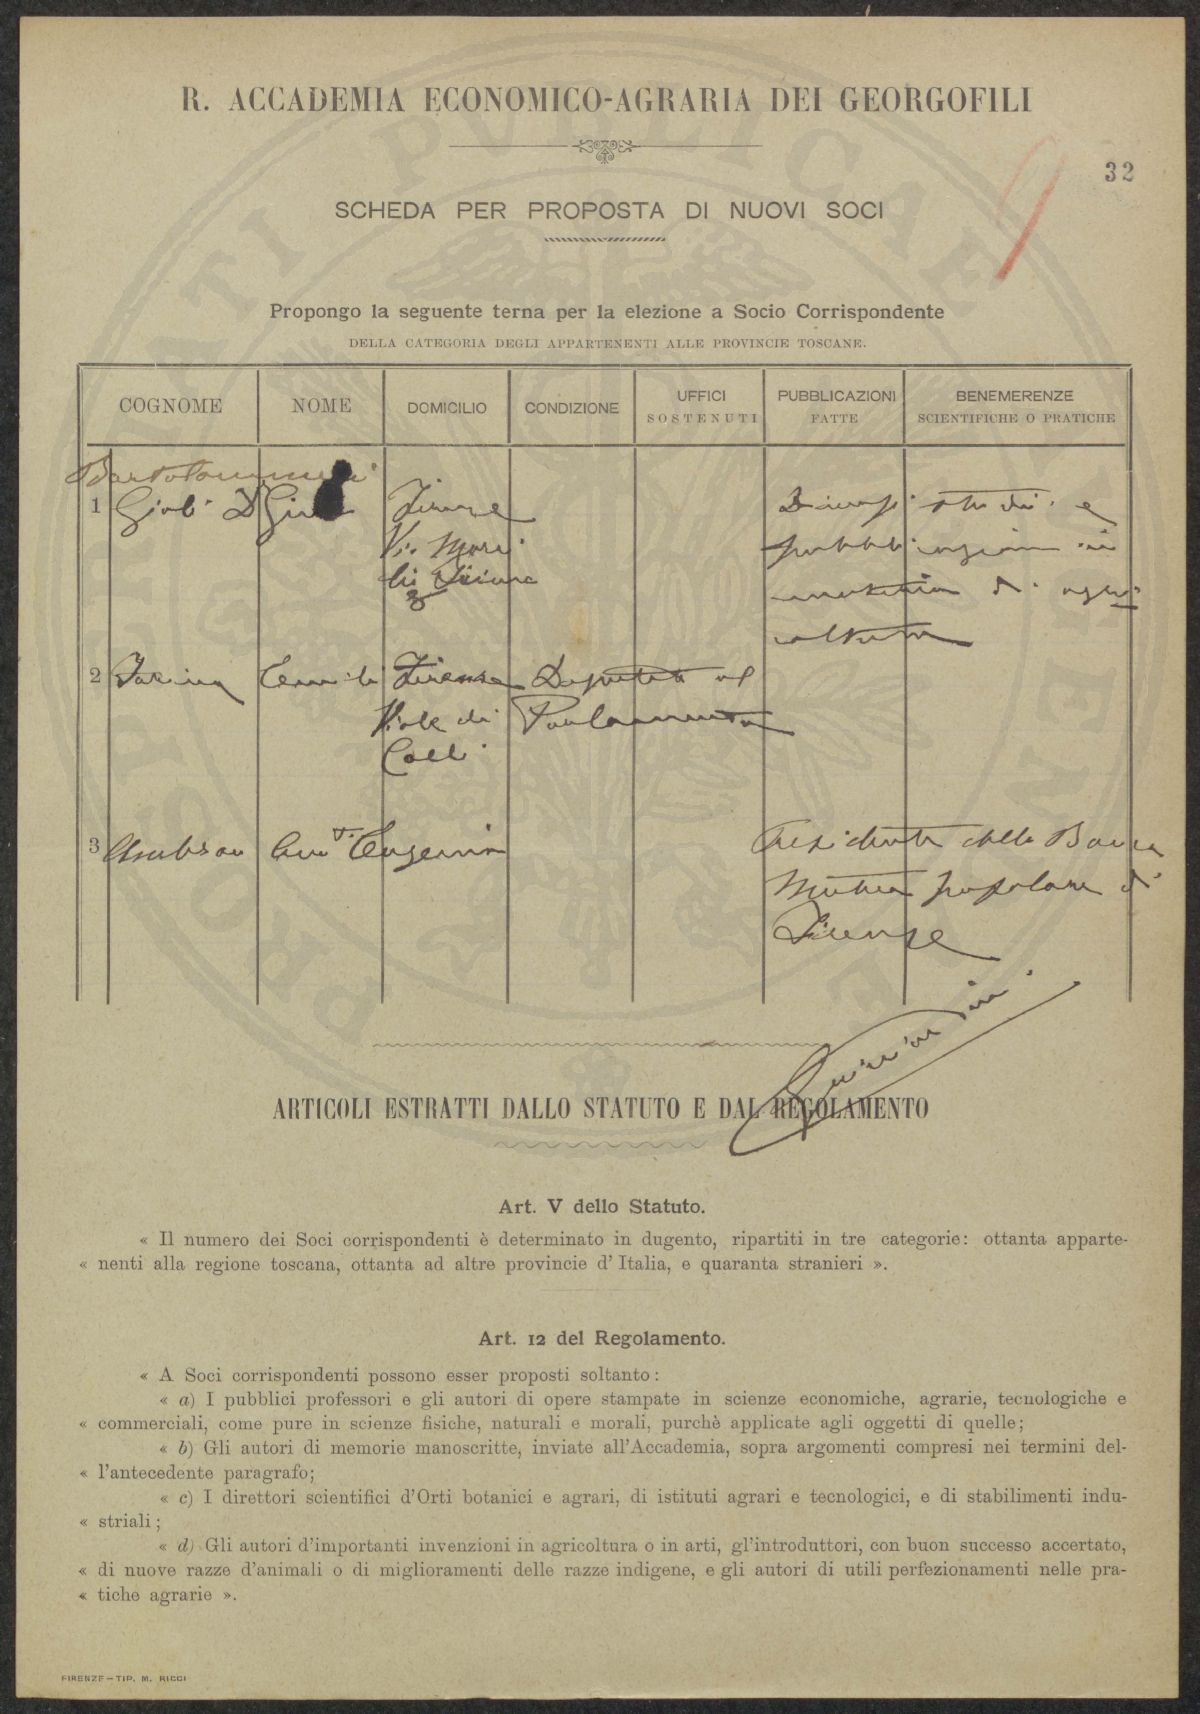 R. ACCADEMIA ECONOMICO-AGRARIA DEI GEORGOFILI
32
9
SCHEDA PER PROPOSTA DI NUOVI SOCI
Propongo la seguente terna per la elezione a Socio Corrispondente
DELLA CATEGORIA DEGLI APPARTENENTI ALLE PROVINCIE TOSCANE.
COGNOME NOME DOMICILIO CONDIZIONE UFFICI SOSTENUTI PUBBLICAZIONI FATTE BENEMERENZE SCIENTIFICHE O PRATICHE
Bartolommei
1 Firenze Diversi studi e
Via pubblicazioni in
materia di agri
coltura
2 Farina Emilio Firenze Deputato al
Viale dei Parlamento
Colli
3 Eugenio Presidente della Banca
Mutua popolare di
Firenze
ARTICOLI ESTRATTI DALLO STATUTO E DAL REGOLAMENTO
Art. V dello Statuto.
« Il numero dei Soci corrispondenti è determinato in dugento, ripartiti in tre categorie: ottanta apparte-
« nenti alla regione toscana, ottanta ad altre provincie d'Italia, e quaranta stranieri ».
Art. 12 del Regolamento.
« A Soci corrispondenti possono esser proposti soltanto:
« a) I pubblici professori e gli autori di opere stampate in scienze economiche, agrarie, tecnologiche e
« commerciali, come pure in scienze fisiche, naturali e morali, purchè applicate agli oggetti di quelle;
« b) Gli autori di memorie manoscritte, inviate all'Accademia, sopra argomenti compresi nei termini del-
« l'antecedente paragrafo;
« c) I direttori scientifici d'Orti botanici e agrari, di istituti agrari e tecnologici, e di stabilimenti indu-
« striali;
« d) Gli autori d'importanti invenzioni in agricoltura o in arti, gl'introduttori, con buon successo accertato,
« di nuove razze d'animali o di miglioramenti delle razze indigene, e gli autori di utili perfezionamenti nelle pra-
« tiche agrarie ».
FIRENZE—TIP. M. RICCI